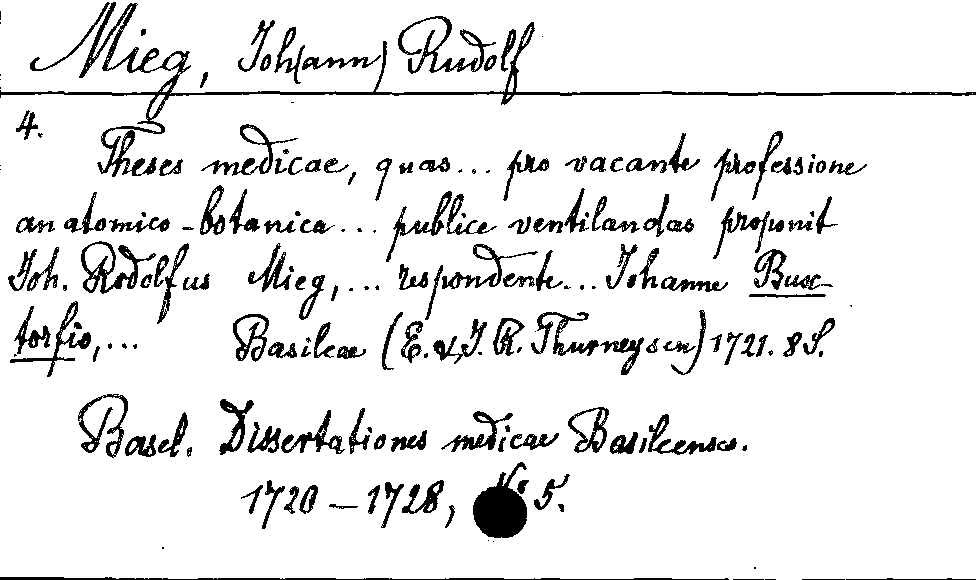 Mieg, Joh(ann) Rudolf
4.
Theses medicae, quas... pro vacante professione
anatomico-botanica... publice ventilandas proponit
Joh. Rodolfus Mieg,... respondente... Johanne Bux-
torfio,... Basileae (E. & J. R. Thurneysen) 1721. 8 S.
Basel. Dissertationes medicae Basileenses.
1720 – 1728, 5.